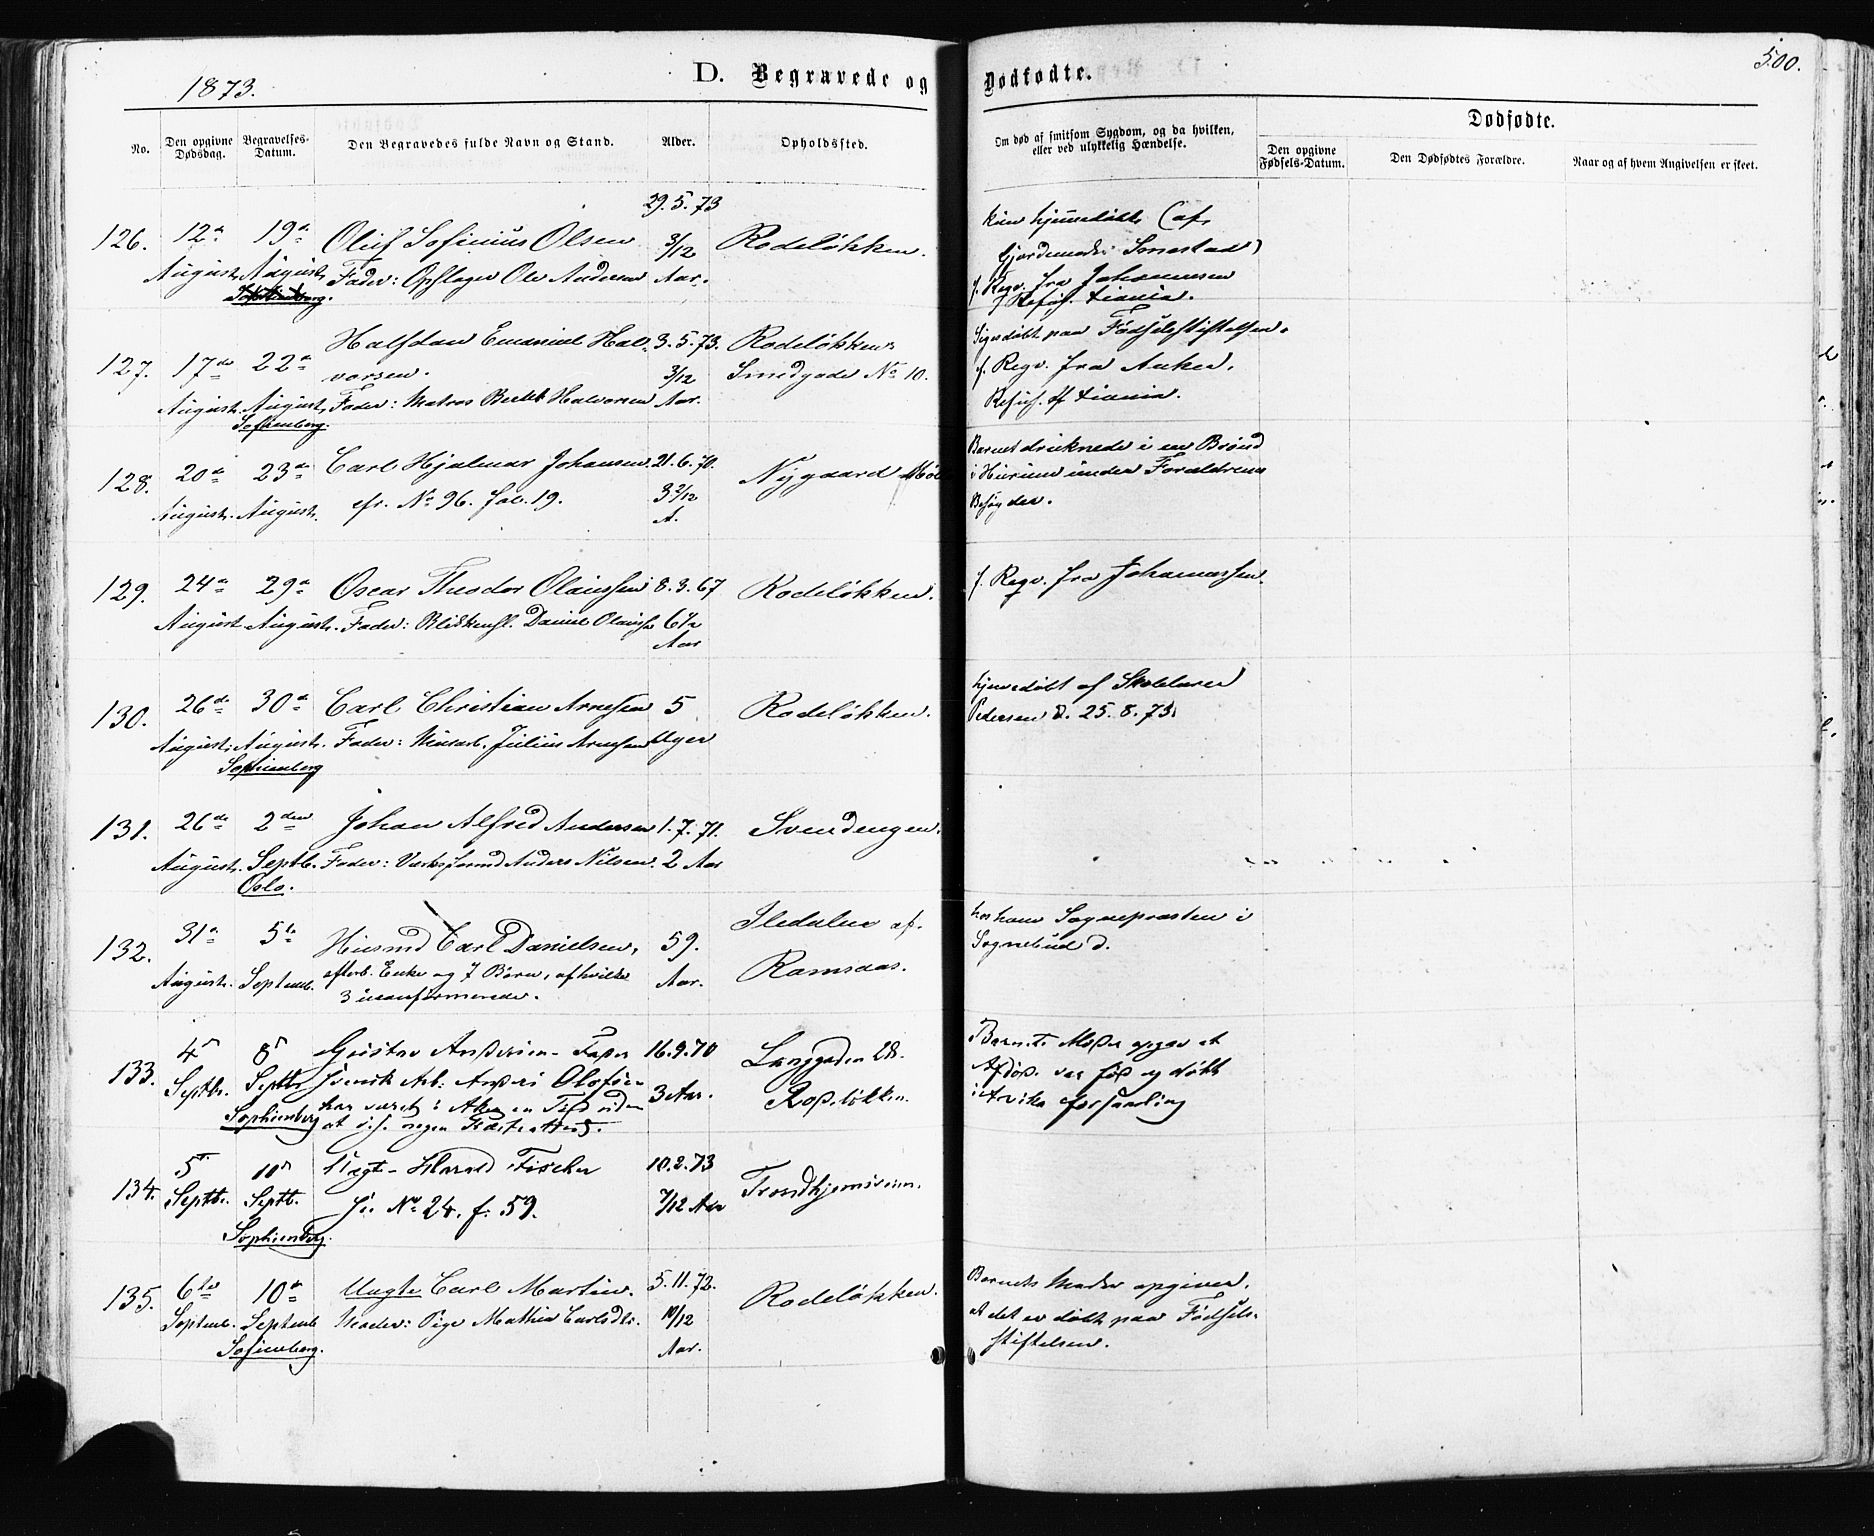 1873.
D. Begravede og Dødfødte.
500.
No.
Den opgivne Dødsdag.
Begravelses-Datum.
Den Begravedes fulde Navn og Stand.
Alder.
Opholdssted.
Om død af smitsom Sygdom, og da hvilken, eller ved ulykkelig Hændelse.
Dødfødte.
Den opgivne Fødsels-Datum.
Den Dødfødtes Forældre.
Naar og af hvem Angivelsen er skeet.
29.5.73
126. 12te 19de Oluf Sofinius Olsen 3/12 Rodeløkken.
August August Fader: Opslager Ole Andersen Aar.
kun hjemmedøbt (af
Gjordemoder Smestad)
f. Regn. fra Johannesen
127. 17de 22de Halfdan Emanuel Hal- 3.5.73. Rodeløkken
vorsen. 3/12 Smedgade No 10.
August. August. Fader: Matros Halvorsen Aar.
Sofienberg.
døbt paa Fødselsstiftelsen.
f. Regn. fra Anker.
128. 20de 23de Carl Hjalmar Johansen 21.6.70. Nygaard
August. August. cfr. No 96. fol. 19. 3 2/12
A.
Barnet druknede i en Brønd
i Hurum under Forældrenes
Besøg der.
129. 24de 29de Oscar Theodor Olaussen 8.3.67 Rodeløkken.
August August. Fader: Daniel 6 1/2
Aar
f. Regn. fra Johannessen.
130. 26de 30de Carl Christian Arnesen 5 Rodeløkken.
August. August. Fader: Julius Arnesen Uger
Sophienberg
hjemmedøbt af Skolelærer
Pedersen d. 25.8.73.
131. 26de 2den Johan Alfred Andersen 1.7.71. Svendengen.
August. Septb. Fader: Anders Nilsen. 2 Aar
Oslo.
132. 31te 5te Husmd Carl Danielsen, 59. Iledalen af
August. Septemb. efterl. Enke og 7 Børn, af hvilke Aar. Ramsaas.
3 ukonfirmerede.
Sognepræsten i
Sognebud d.
133. 4de 8de Gustav Andersen - Fader 16.9.70 Langgaden 28.
Septbr. Septbr Svensk Arb. Anders Olofsen 3 Aar. Rodeløkken.
Sophienberg har været i Aker en Tid uden
at
Barnets Moder opgav at
Afdøde var fød og døbt
i Arvika forsamling
134. 5te 10de Uægte - Harald Fischer 10.2.73 Trondhjemsveien.
Septbr. Septb. fr. No 24. f. 59. 7/12 Aar
Sophienberg.
135. 6te 10de Uægte Carl Martin. 5.11.72. Rodeløkken.
Septemb. Septemb Moder: Pige Mathia Carlsdtr. 10/12
Sofienberg. Aar.
Barnets Moder opgiver,
at det er døbt paa Fødsels-
stiftelsen.